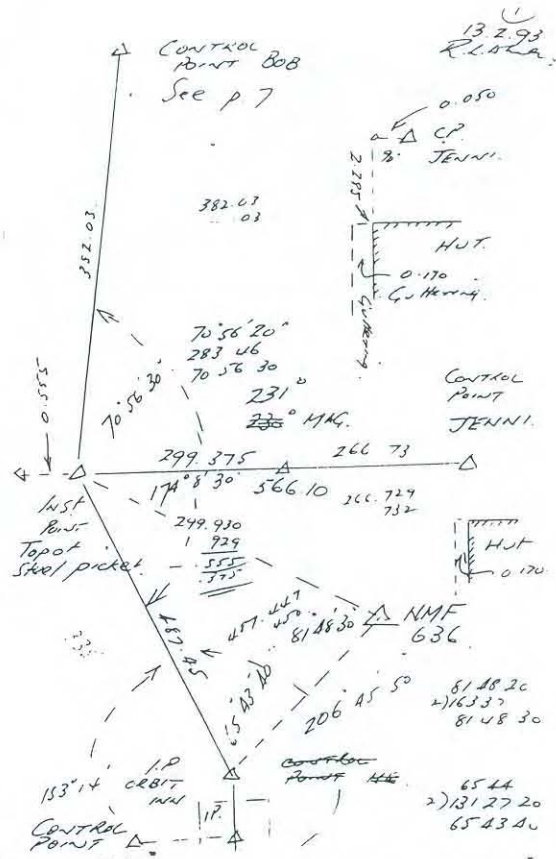 1
13.2.93
CONTROL
POINT BOB
See p. 7
0.050
C.P.
JENNI.
90°
2.295
382.03
.03
HUT.
0.170
Guttering.
Guttering.
352.03.
70° 56' 20"
283 46
70 56 30
70° 56' 30"
231°
230° MAG.
0.555
CONTROL
POINT
JENNI.
299.375
266 73
174° 8' 30"
566.10
266.729
732
INST
POINT
Top of
Steel picket.
249.930
1 929
555
375
HUT
0.170
457.447
450.
81 48 30
NMF
636
487.45
65 43 40
206° 45' 50
81 48 20
2)163 37
81 48 30
153° 14'
I.P
ORBIT
INN
CONTROL
POINT
65 44
2)131 27 20
65 43 40
I.P.
CONTROL
POINT